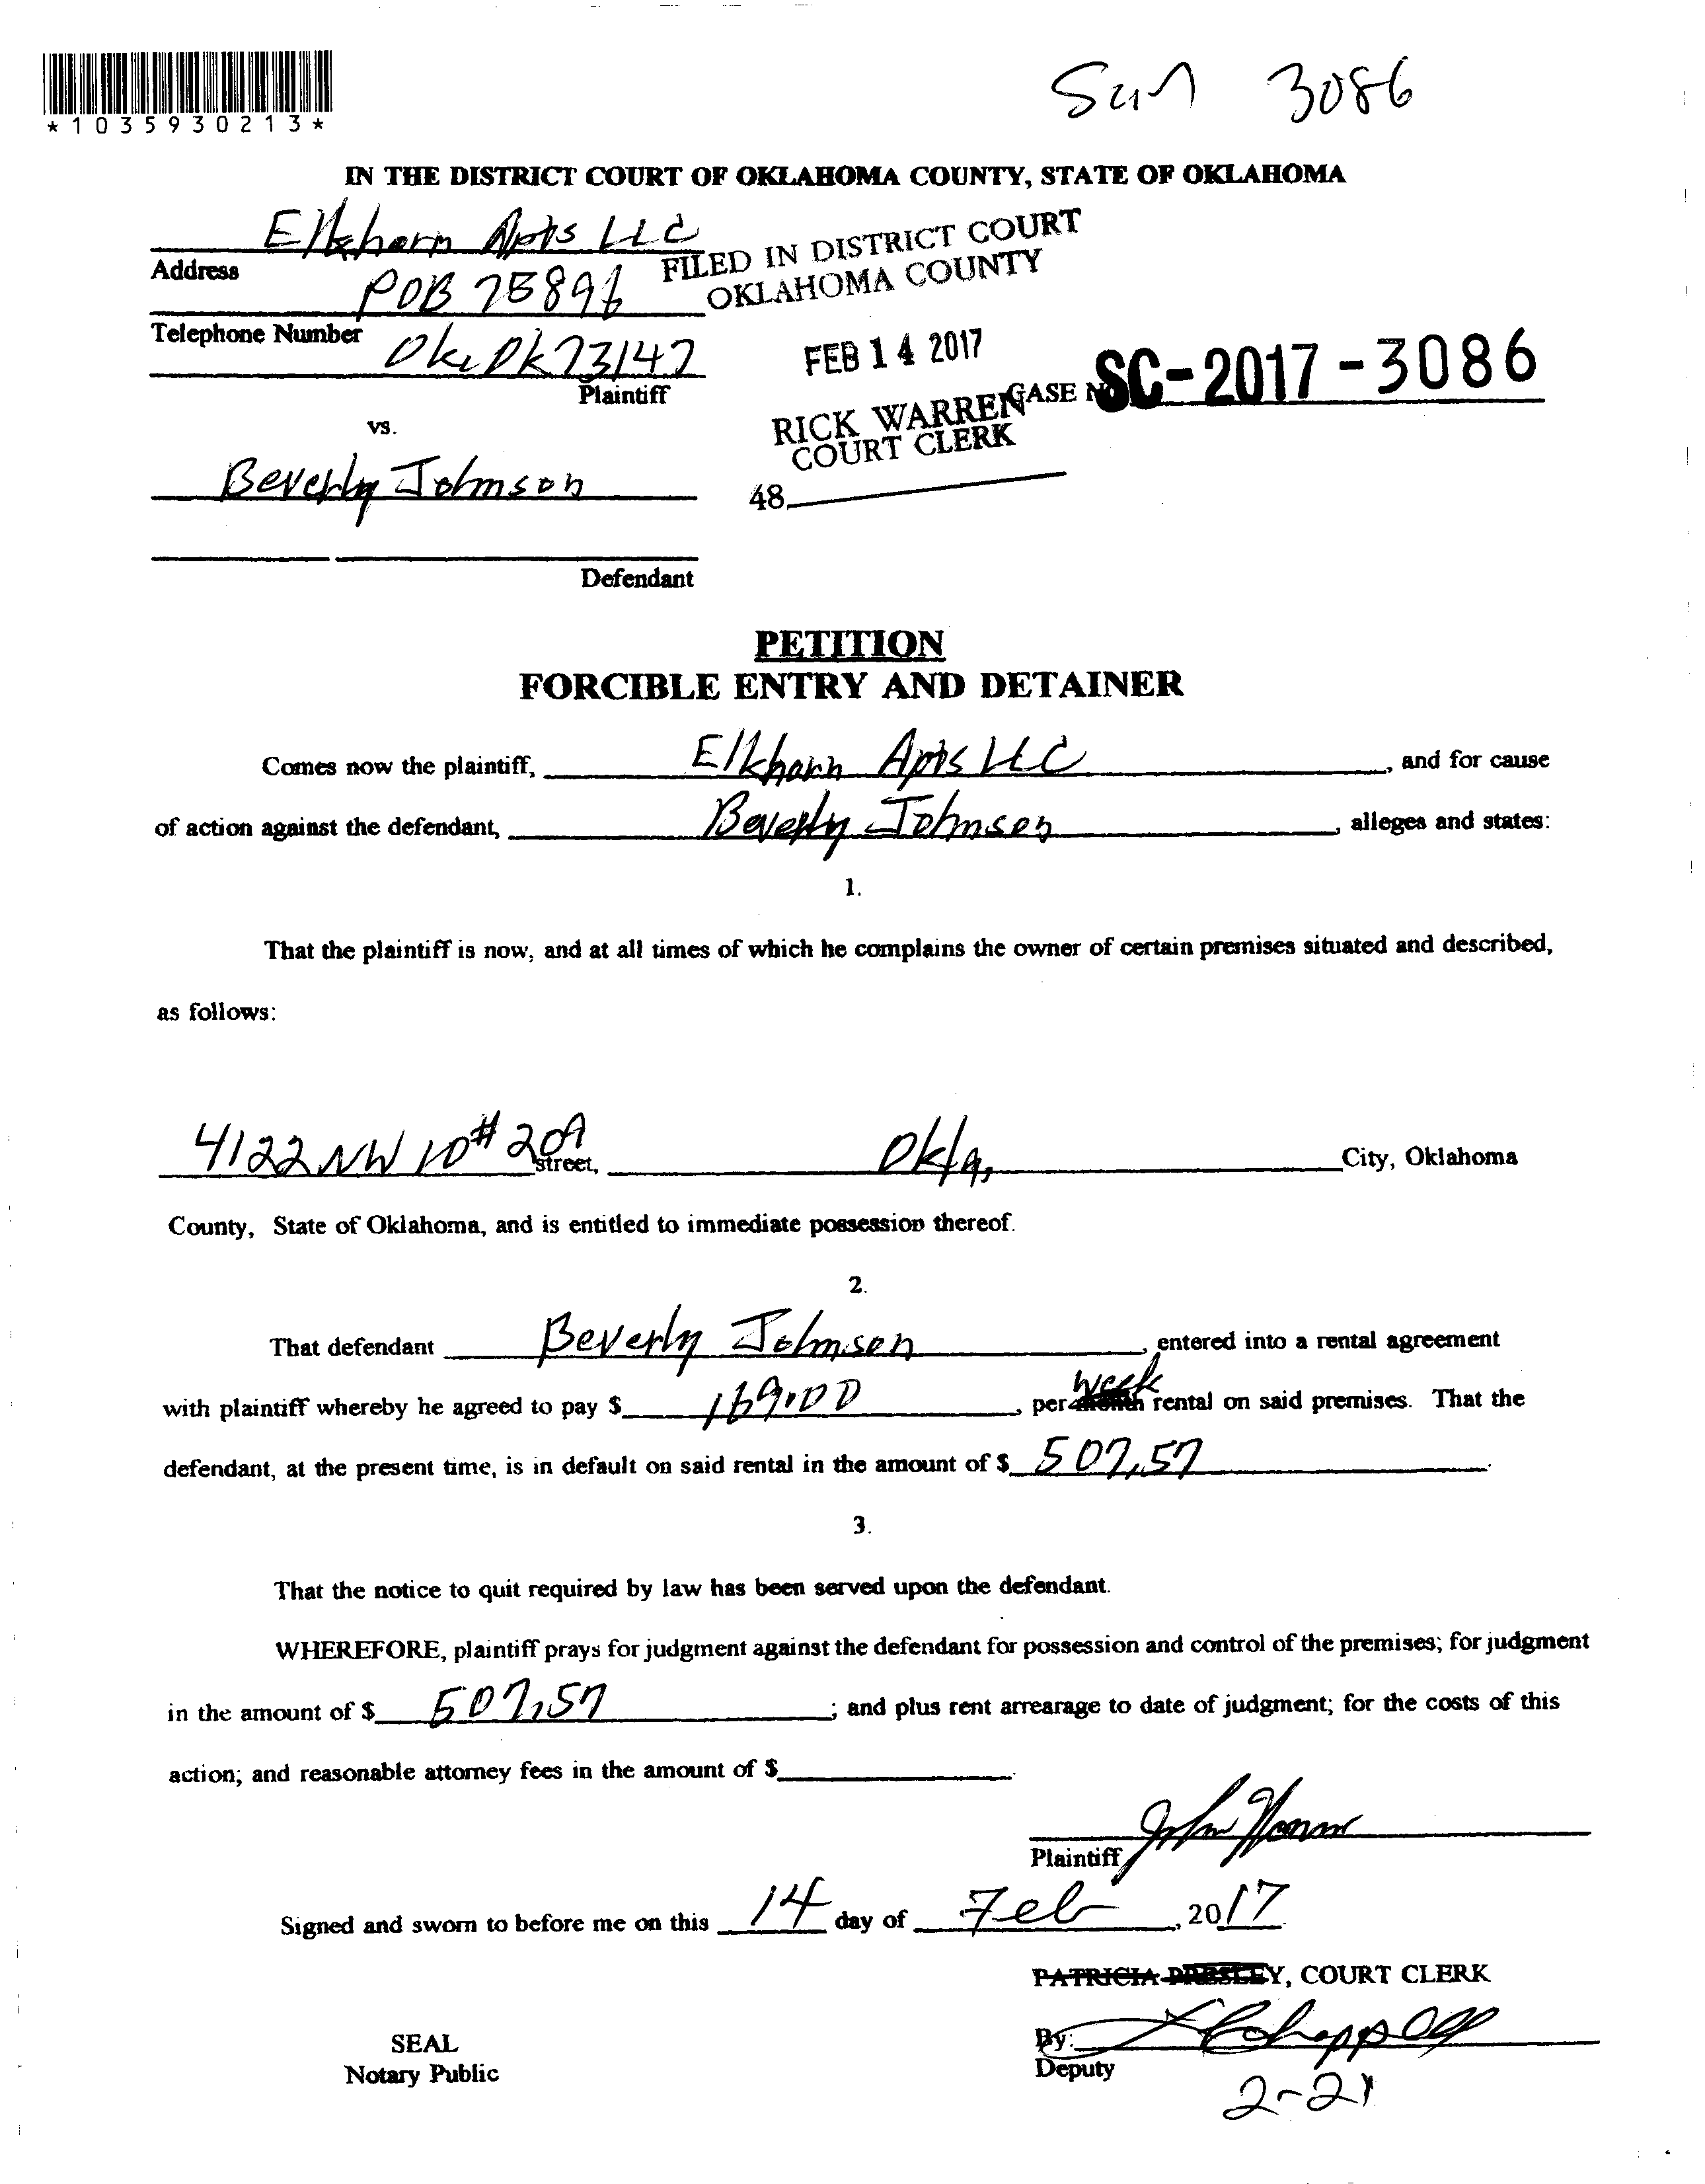 *1035930213*
3086
IN THE DISTRICT COURT OF OKLAHOMA COUNTY, STATE OF OKLAHOMA
Elkhorn Apts LLC
FILED IN DISTRICT COURT
OKLAHOMA COUNTY
Address
POB
Telephone Number
Ok 73147
Plaintiff
FEB 14 2017
CASE NO. SC-2017-3086
RICK WARREN
COURT CLERK
vs.
Beverly Johnson
48
Defendant
PETITION
FORCIBLE ENTRY AND DETAINER
Comes now the plaintiff, Elkhorn Apts LLC, and for cause
of action against the defendant, Beverly Johnson, alleges and states:
1.
That the plaintiff is now, and at all times of which he complains the owner of certain premises situated and described,
as follows:
4122 NW 10 # street, Okla, City, Oklahoma
County, State of Oklahoma, and is entitled to immediate possession thereof.
2.
That defendant Beverly Johnson, entered into a rental agreement
with plaintiff whereby he agreed to pay $ 169.00, per month week rental on said premises. That the
defendant, at the present time, is in default on said rental in the amount of $ 507,57.
3.
That the notice to quit required by law has been served upon the defendant.
WHEREFORE, plaintiff prays for judgment against the defendant for possession and control of the premises; for judgment
in the amount of $ 507,57; and plus rent arrearage to date of judgment; for the costs of this
action; and reasonable attorney fees in the amount of $
Plaintiff
Signed and sworn to before me on this 14 day of Feb, 2017
PATRICIA PRESLEY, COURT CLERK
SEAL
By:
Notary Public
Deputy
2-21